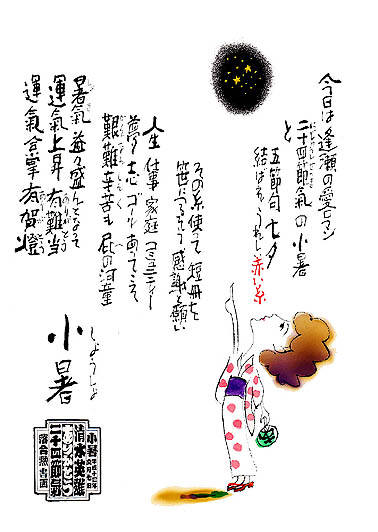 今日は逢瀬の愛ロマン
二十四節氣の小暑
と
五節句 七夕
結ばれうれし 赤い糸
その糸使って 短冊を
笹につるして 感謝と願い
人生 仕事 家庭 コミュニティー
夢 志 ゴールあってこそ
艱難辛苦も 屁の河童
暑氣 益々盛んとなって
運氣上昇 有難当
運氣合掌 有賀燈
小暑
しょうしょ
小暑
清水英雄
二十四節氣
落合勲書画